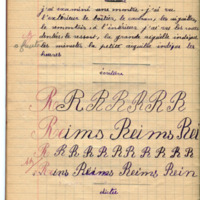 j'ai examiné une montre - j'ai vu
le boîtier, le cadran, les aiguilles,
le remontoir à l'intérieur j'ai vu les roues
dentées le ressort, la grande aiguille indique
les minutes la petite aiguille indique les
heures
écriture
R R R R R R R
Reims Reims Rei
R R R R R R R R R
Reims Reims Reims Reim
dictée